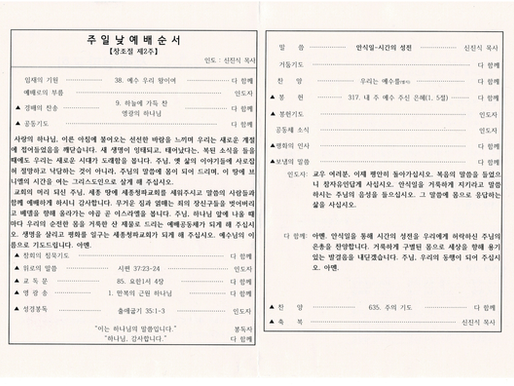 주일낮예배순서
【창조절 제2주】
인도 : 신진식 목사
임재의 기원 38. 예수 우리 왕이여 다 함께
예배로의 부름 인도자
▲ 경배의 찬송 9. 하늘에 가득 찬 영광의 하나님 다 함께
▲ 공동기도 다 함께
사랑의 하나님, 이른 아침에 불어오는 선선한 바람을 느끼며 우리는 새로운 계절
에 접어들었음을 깨닫습니다. 새 생명이 잉태되고, 태어났다는, 복된 소식을 들을
때에도 우리는 새로운 시대가 도래함을 봅니다. 주님, 옛 삶의 이야기들에 사로잡
혀 절망하고 낙담하는 것이 아니라, 주님의 말씀에 몸이 되어 드리며, 이 땅에 브
니엘의 시간을 여는 그리스도인으로 살게 해 주십시오.
교회의 머리 되신 주님, 세종 땅에 세종청파교회를 세워주시고 말씀의 사람들과
함께 예배하게 하시니 감사합니다. 무거운 짐과 얽매는 죄의 장신구들을 벗어버리
고 베델을 향해 올라가는 야곱 곧 이스라엘을 봅니다. 주님, 하나님 앞에 나올 때
마다 우리의 온전한 몸을 거룩한 산 제물로 드리는 예배공동체가 되게 해 주십시
오. 생명을 살리고 평화를 일구는 세종청파교회가 되게 해 주십시오. 예수님의 이
름으로 기도드립니다. 아멘.
▲ 참회의 침묵기도 다 함께
▲ 위로의 말씀 시편 37:23-24 인도자
▲ 교 독 문 85. 요한1서 4장 다 함께
▲ 영 광 송 1. 만복의 근원 하나님 다 함께
▲ 성경봉독 출애굽기 35:1-3 인도자
"이는 하나님의 말씀입니다." 봉독자
"하나님, 감사합니다." 다 함께
말 씀 안식일-시간의 성전 신진식 목사
거둠기도 다 함께
찬 양 우리는 예수를 다 함께
▲ 봉 헌 317. 내 주 예수 주신 은혜(1, 5절) 다 함께
▲ 봉헌기도 인도자
공동체 소식 인도자
▲평화의 인사 다 함께
▲보냄의 말씀 다 함께
인도자: 교우 여러분, 이제 평안히 돌아가십시오. 복음의 말씀을 들었으
니 참자유인답게 사십시오. 안식일을 거룩하게 지키라고 말씀
하시는 주님의 음성을 들으십시오. 그 말씀에 몸으로 응답하는
삶을 사십시오.
다 함께: 아멘. 안식일을 통해 시간의 성전을 우리에게 허락하신 주님의
은총을 찬양합니다. 거룩하게 구별된 몸으로 세상을 향해 용기
있는 발걸음을 내딛겠습니다. 주님, 우리의 동행이 되어 주십시
오. 아멘.
▲ 찬 양 635. 주의 기도 다 함께
▲ 축 복 신진식 목사